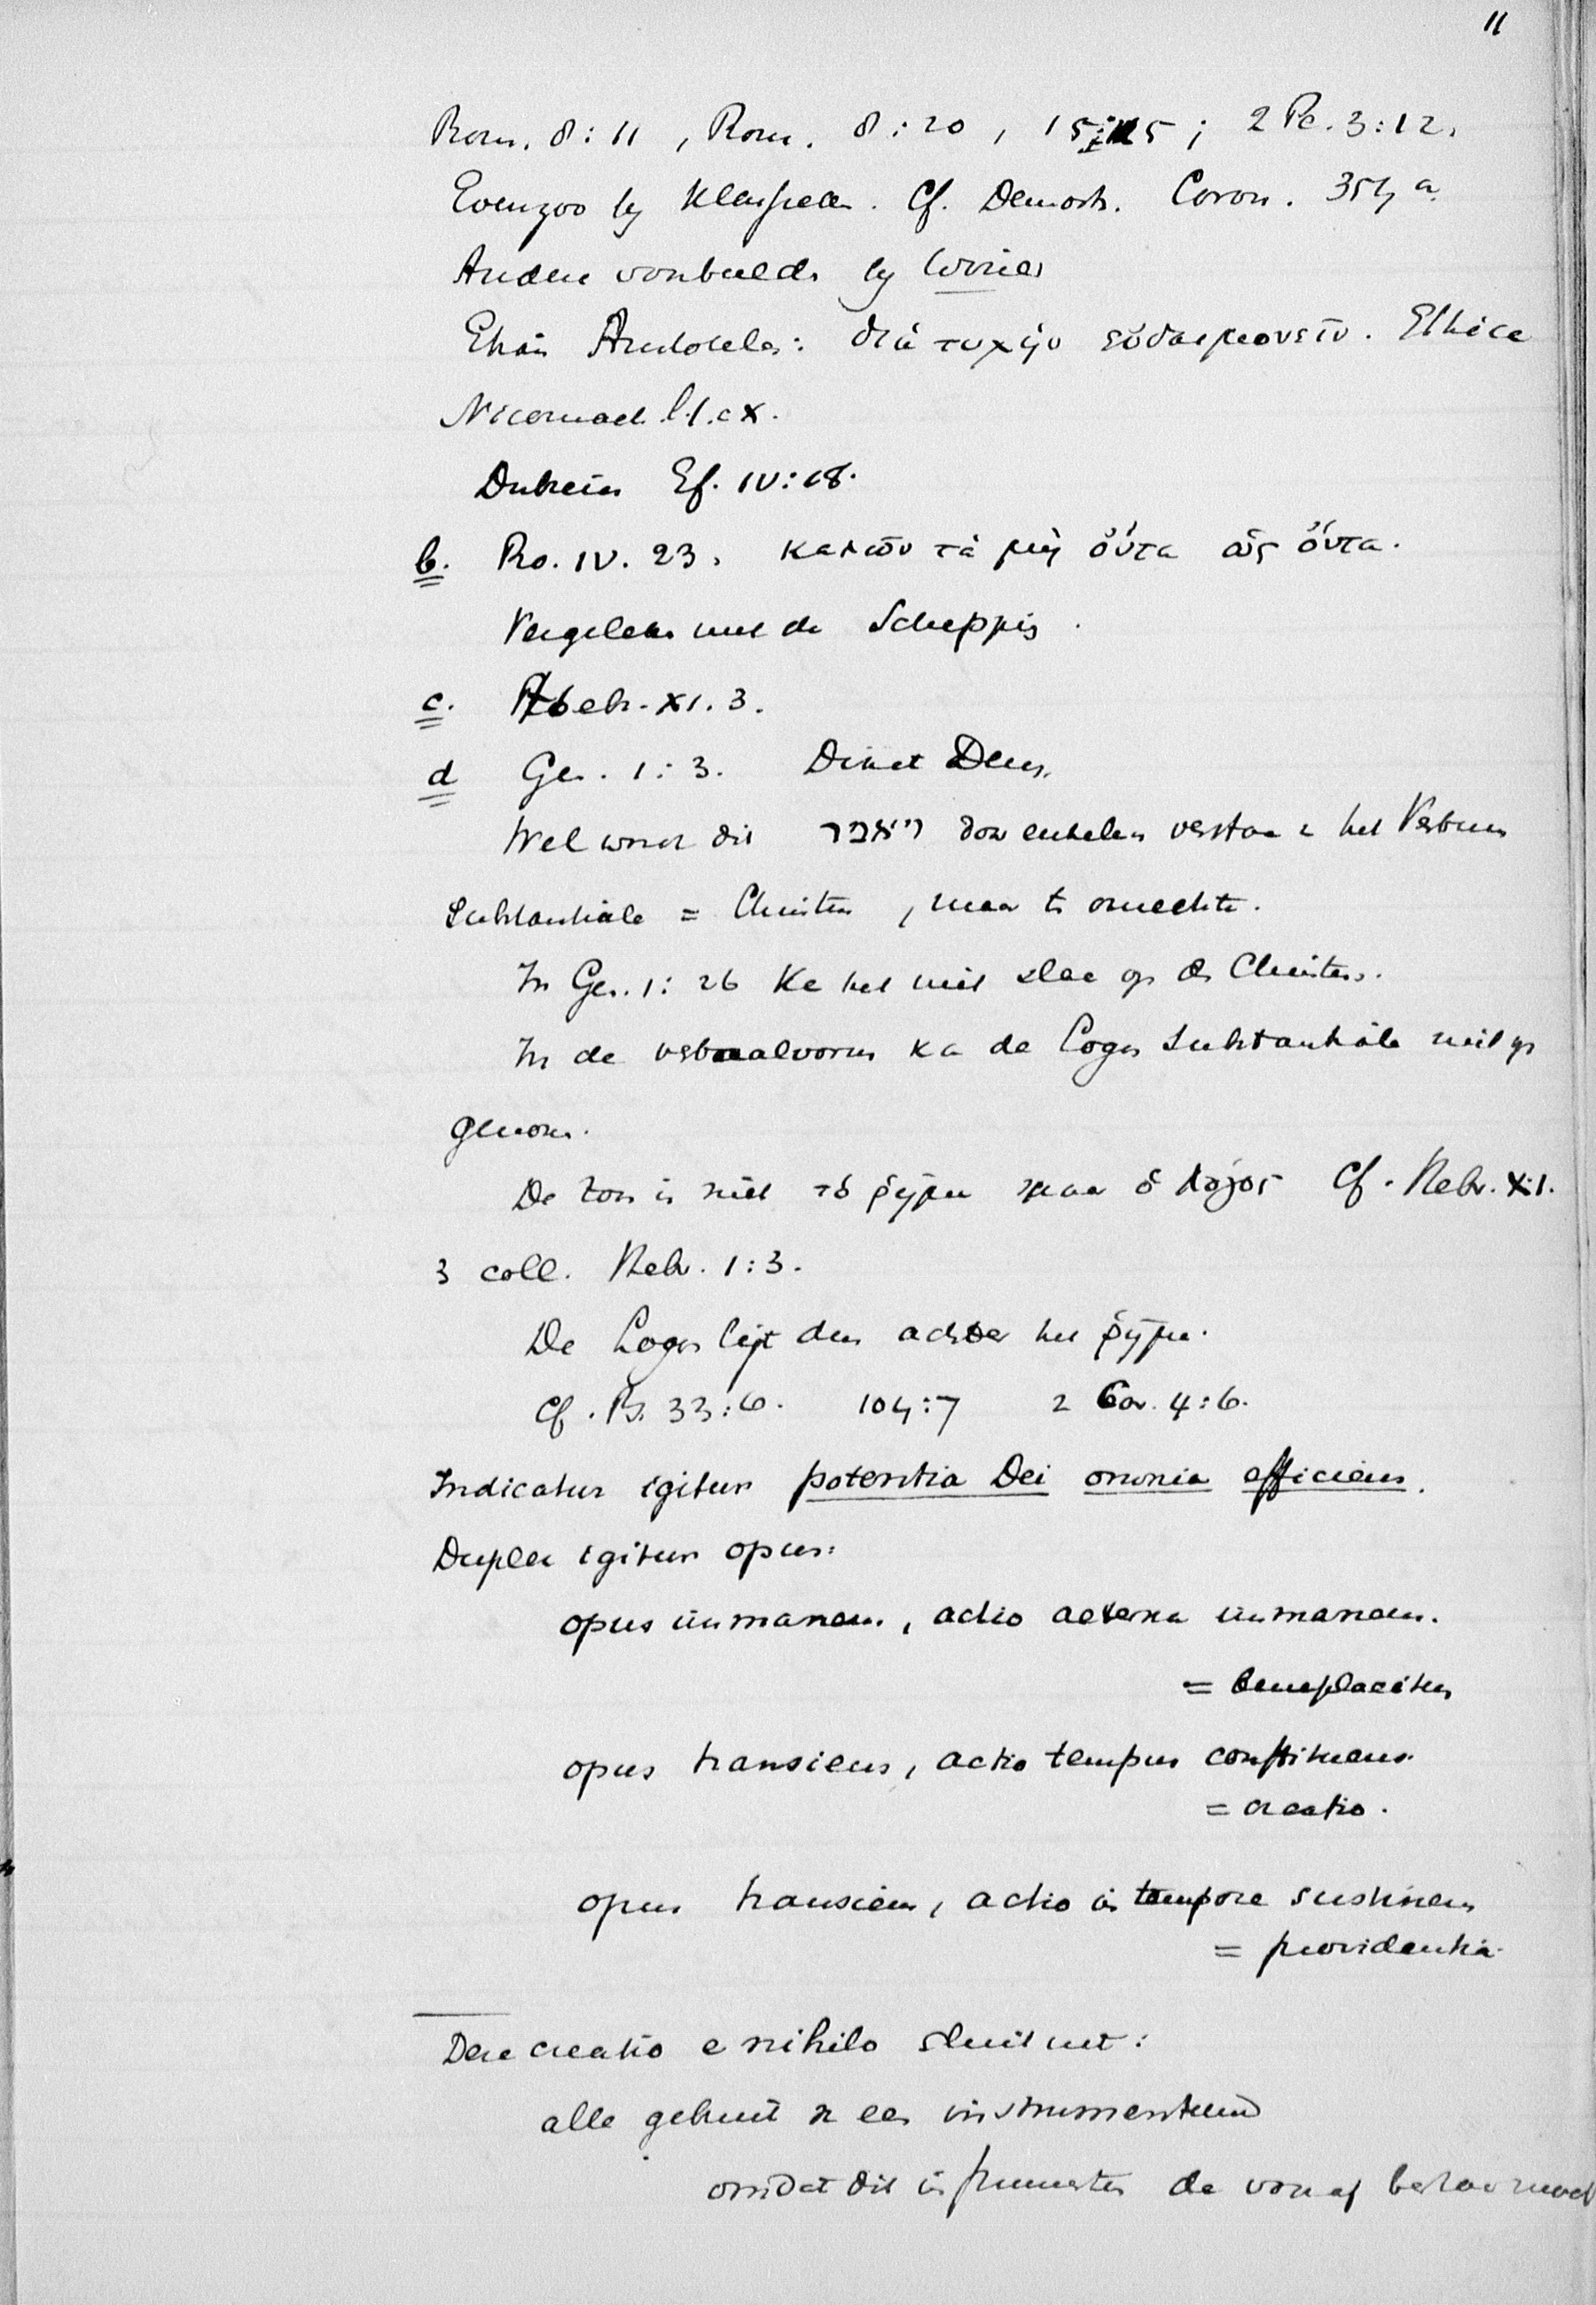 11
Rom. 8:11, Rom. 8:20, 15:15; 2 Pe. 3:12.
Evenzoo bij Klassieken. Cf. Demosth. Coron. 354 a.
Andere voorbeelden bij Winer
Ethiam Aristoteles: διὰ τυχὴν εὐδαιμονεῖν. Ethica
Nicomach. l. 1. c X.
Dubium Ef. IV:18.
b. Ro. IV. 23. καλῶν τὰ μὴ ὄντα ὡς ὄντα.
Vergeleken met de Schepping.
c. Hebr. XI. 3.
d Gen. 1:3. Dixit Deus.
Wel wordt dit ויאמר door enkelen verstaan v het Verbum
Substantiale = Christus, maar te onrechte.
In Gen. 1:26 kan het niet slaan op den Christus.
In de verbaalvorm kan de Logos Substantiale niet zijn
genomen.
De Zoon is niet τὸ ῥῆμα maar ὁ λόγος Cf. Hebr. XI.
3 coll. Hebr. 1:3.
De Logos ligt dus achter het ῥῆμα.
Cf. Ps. 33:6. 104:7 2 Cor. 4:6.
Indicatur igitur potentia Dei omnia efficiens.
Duplex igitur opus:
opus immanens, actio aeterna immanens.
= beneplacitum
opus transiens, actio tempus constituens.
= creatio.
opus transiens, actio in tempore sustinens
= providentia.
Deze creatio e nihilo sluit uit:
alle gebruik v een instrumentum
omdat dit instrument de vooraf